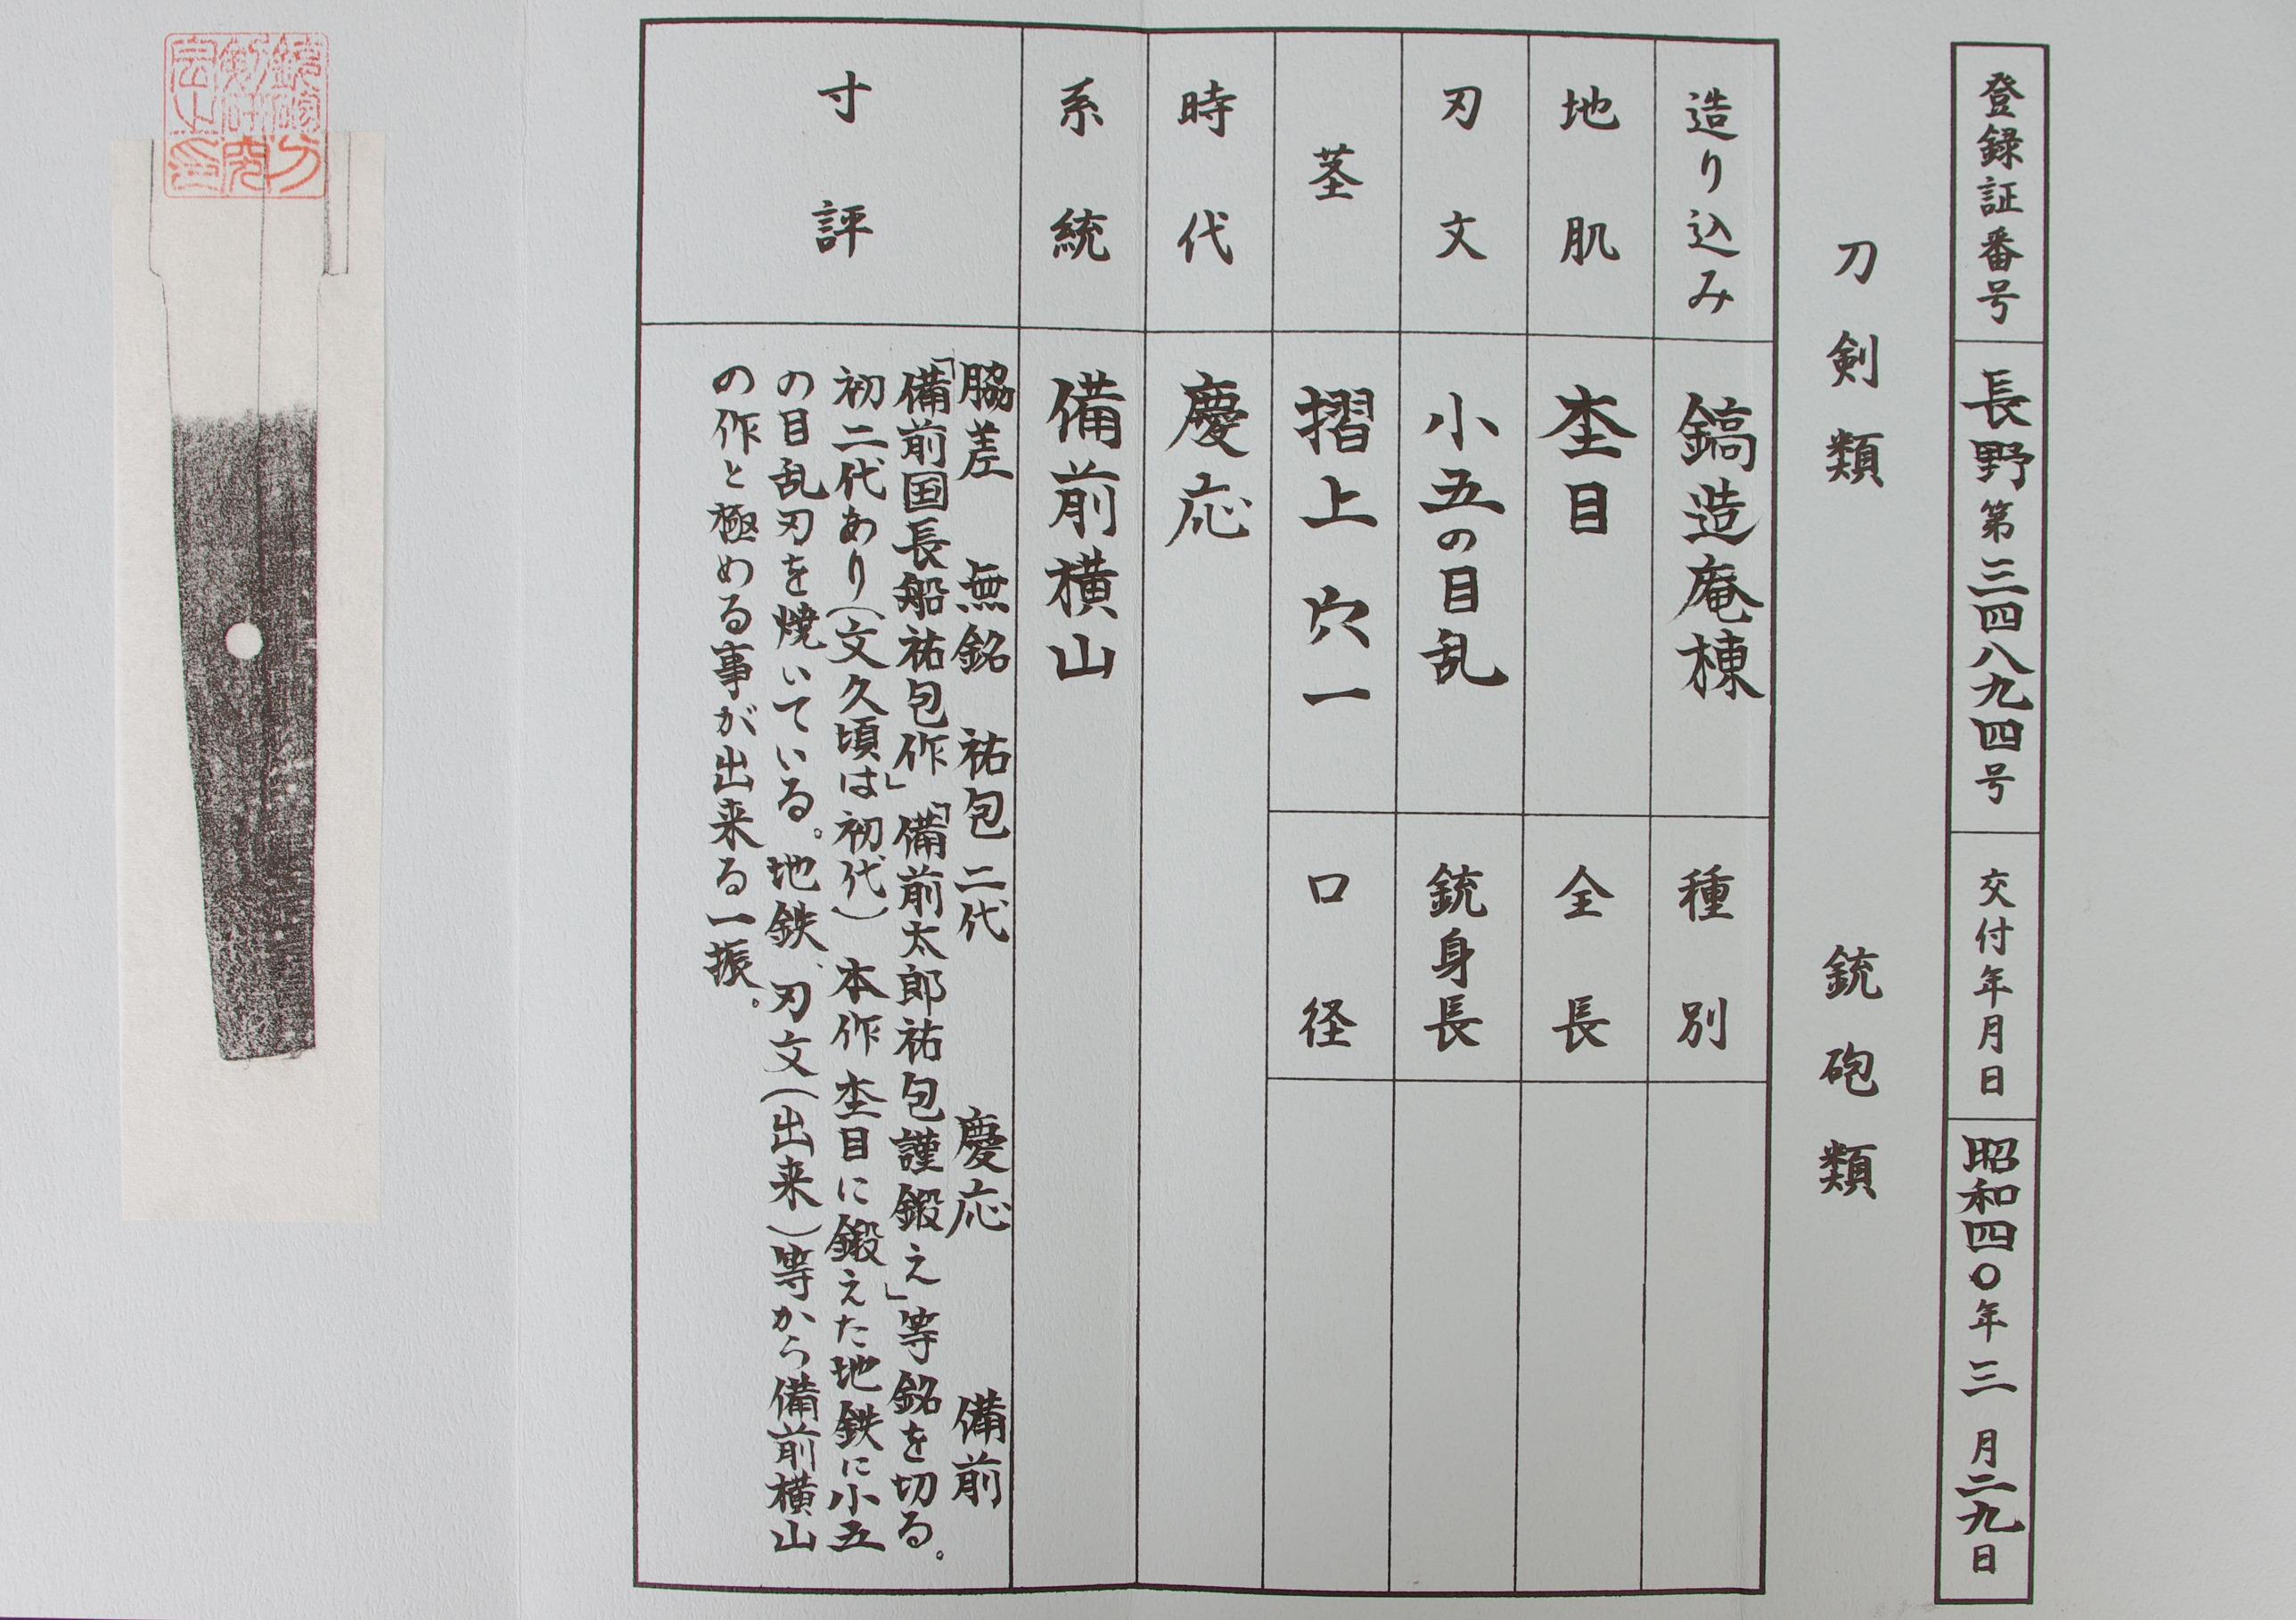 登録証番号 長野第三四八九四号 交付年月日 昭和四〇年三月二九日
刀剣類 銃砲類
造り込み 鎬造庵棟 種別
地肌 杢目 全長
刃文 小五の目乱 銃身長
茎 摺上 穴一 口径
時代 慶応
系統 備前横山
寸評
脇差 無銘 祐包二代 慶応 備前
「備前国長船祐包作」「備前太郎祐包謹鍛え」等銘を切る。
初二代あり(文久頃は初代) 本作 杢目に鍛えた地鉄に小五
の目乱刃を焼いている。地鉄、刃文(出来)等から備前横山
の作と極める事が出来る一振。